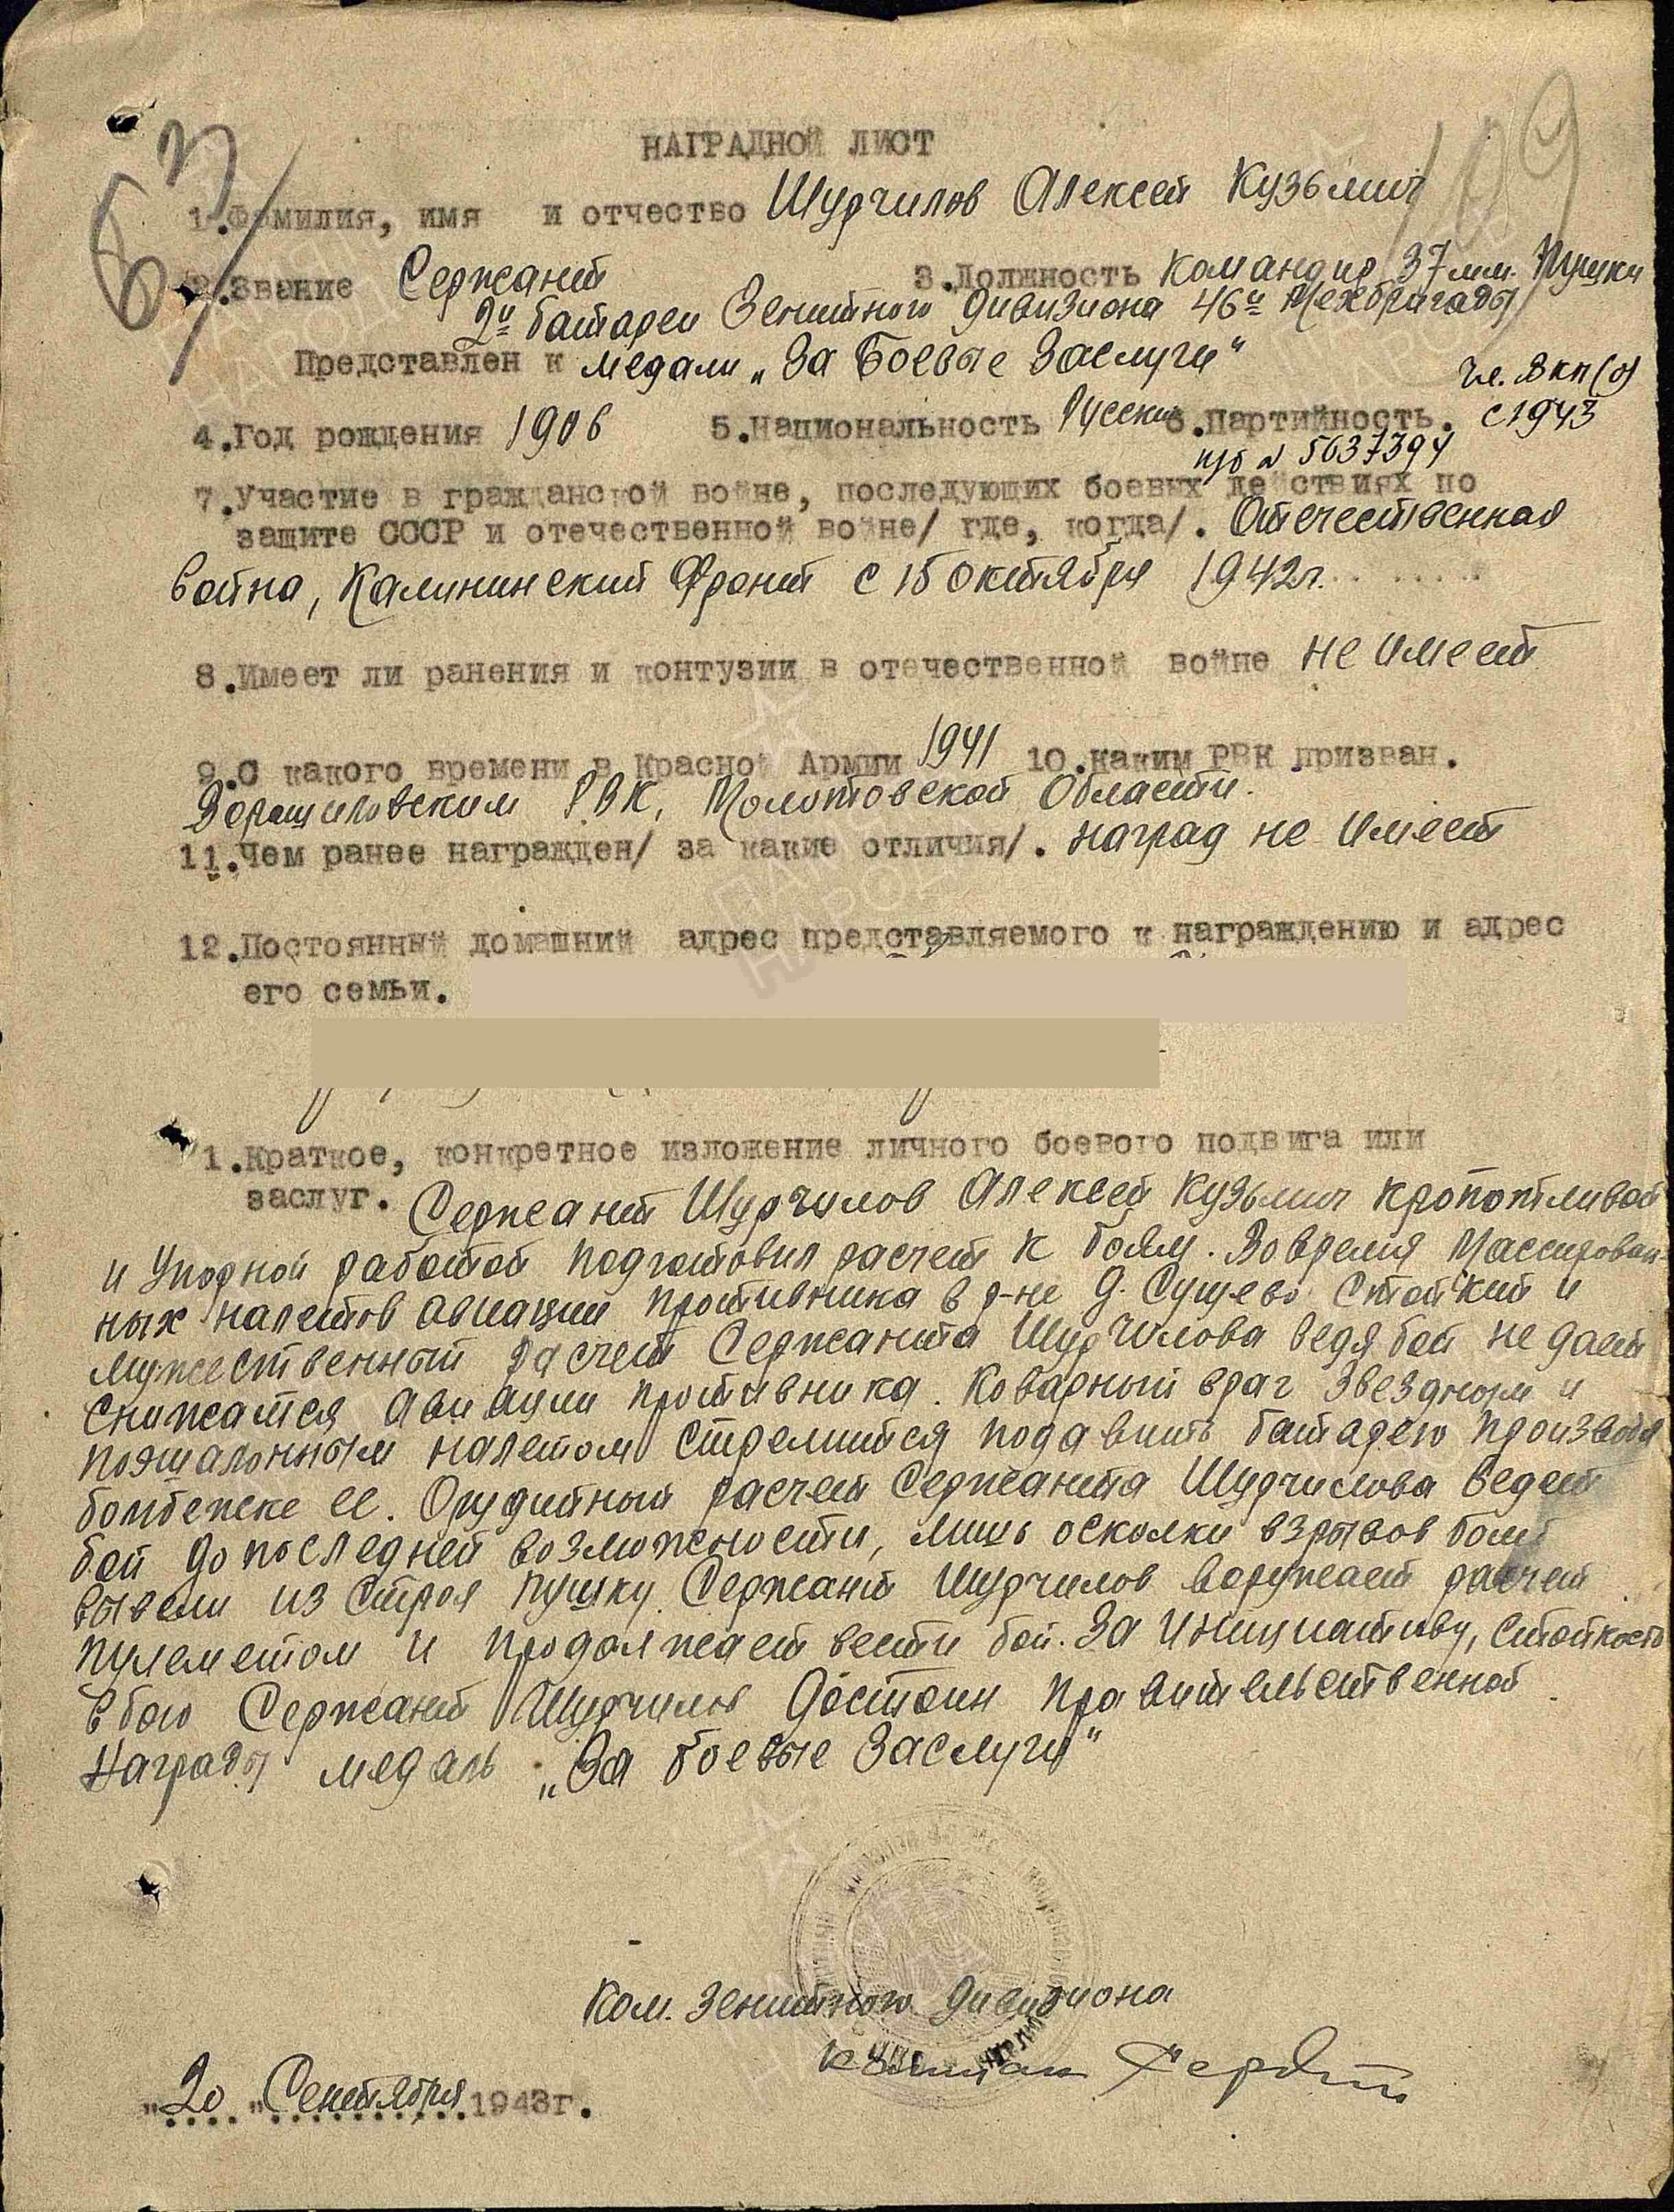 НАГРАДНОЙ ЛИСТ
1.Фамилия, имя и отчество Шурчилов Алексей Кузьмич
2.Звание Сержант 3.Должность Командир 37мм. Пушки
2й батареи Зенитного дивизиона 46й Мехбригады
Представлен к медали „За Боевые Заслуги"
Чл. Вкп(б)
4.Год рождения 1906 5.Национальность Русский 6.Партийность. с 1943
п/б N 5637394
7.Участие в гражданской войне, последующих боевых действиях по
защите СССР и отечественной войне/ где, когда/. Отечественная
война, Калининский Фронт с 15 октября 1942г.
8.Имеет ли ранения и контузии в отечественной войне не имеет
9.С какого времени в Красной Армии 1941 10.Каким РВК призван.
Ворошиловским РВК, Молотовской Области.
11.Чем ранее награжден/ за какие отличия/. наград не имеет
12.Постоянный домашний адрес представляемого к награждению и адрес
его семьи.
1.Краткое, конкретное изложение личного боевого подвига или
заслуг. Сержант Шурчилов Алексей Кузьмич кропотливой
и упорной работой подготовил расчет к боям. Вовремя Массирован-
ных налетов авиации противника в р-не д. Сущево Стойкий и
мужественный расчет Сержанта Шурчилова ведя бой не дает
снижатся авиации противника. Коварный враг звездным и
поэшалонным налетом стремится подавить батарею производя
бомбежке ее. Орудийный расчет Сержанта Шурчилова ведет
бой до последней возможности, лишь осколки взрывов бомб
вывели из строя пушку. Сержант Шурчилов воружает расчет
пулеметом и продолжает вести бой. За Инициативу, стойкость
в бою Сержант Шурчилов Достоин правительственной
Награды медаль „За боевые Заслуги"
Ком. Зенитного дивизиона
капитан
"20" Сентября 1943г.
67